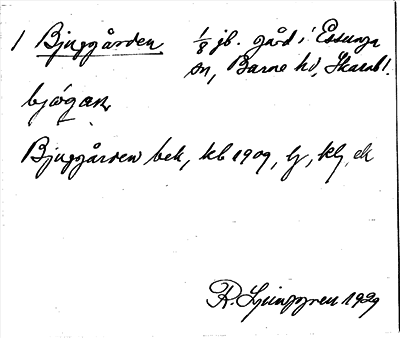 1 Bjuggården 1/8 jb. gård i Essunga
sn, Barne hd, Skarab l.
bjògan
Bjuggården bek, kb 1909, lj, klj, ek
R. Ljunggren 1929